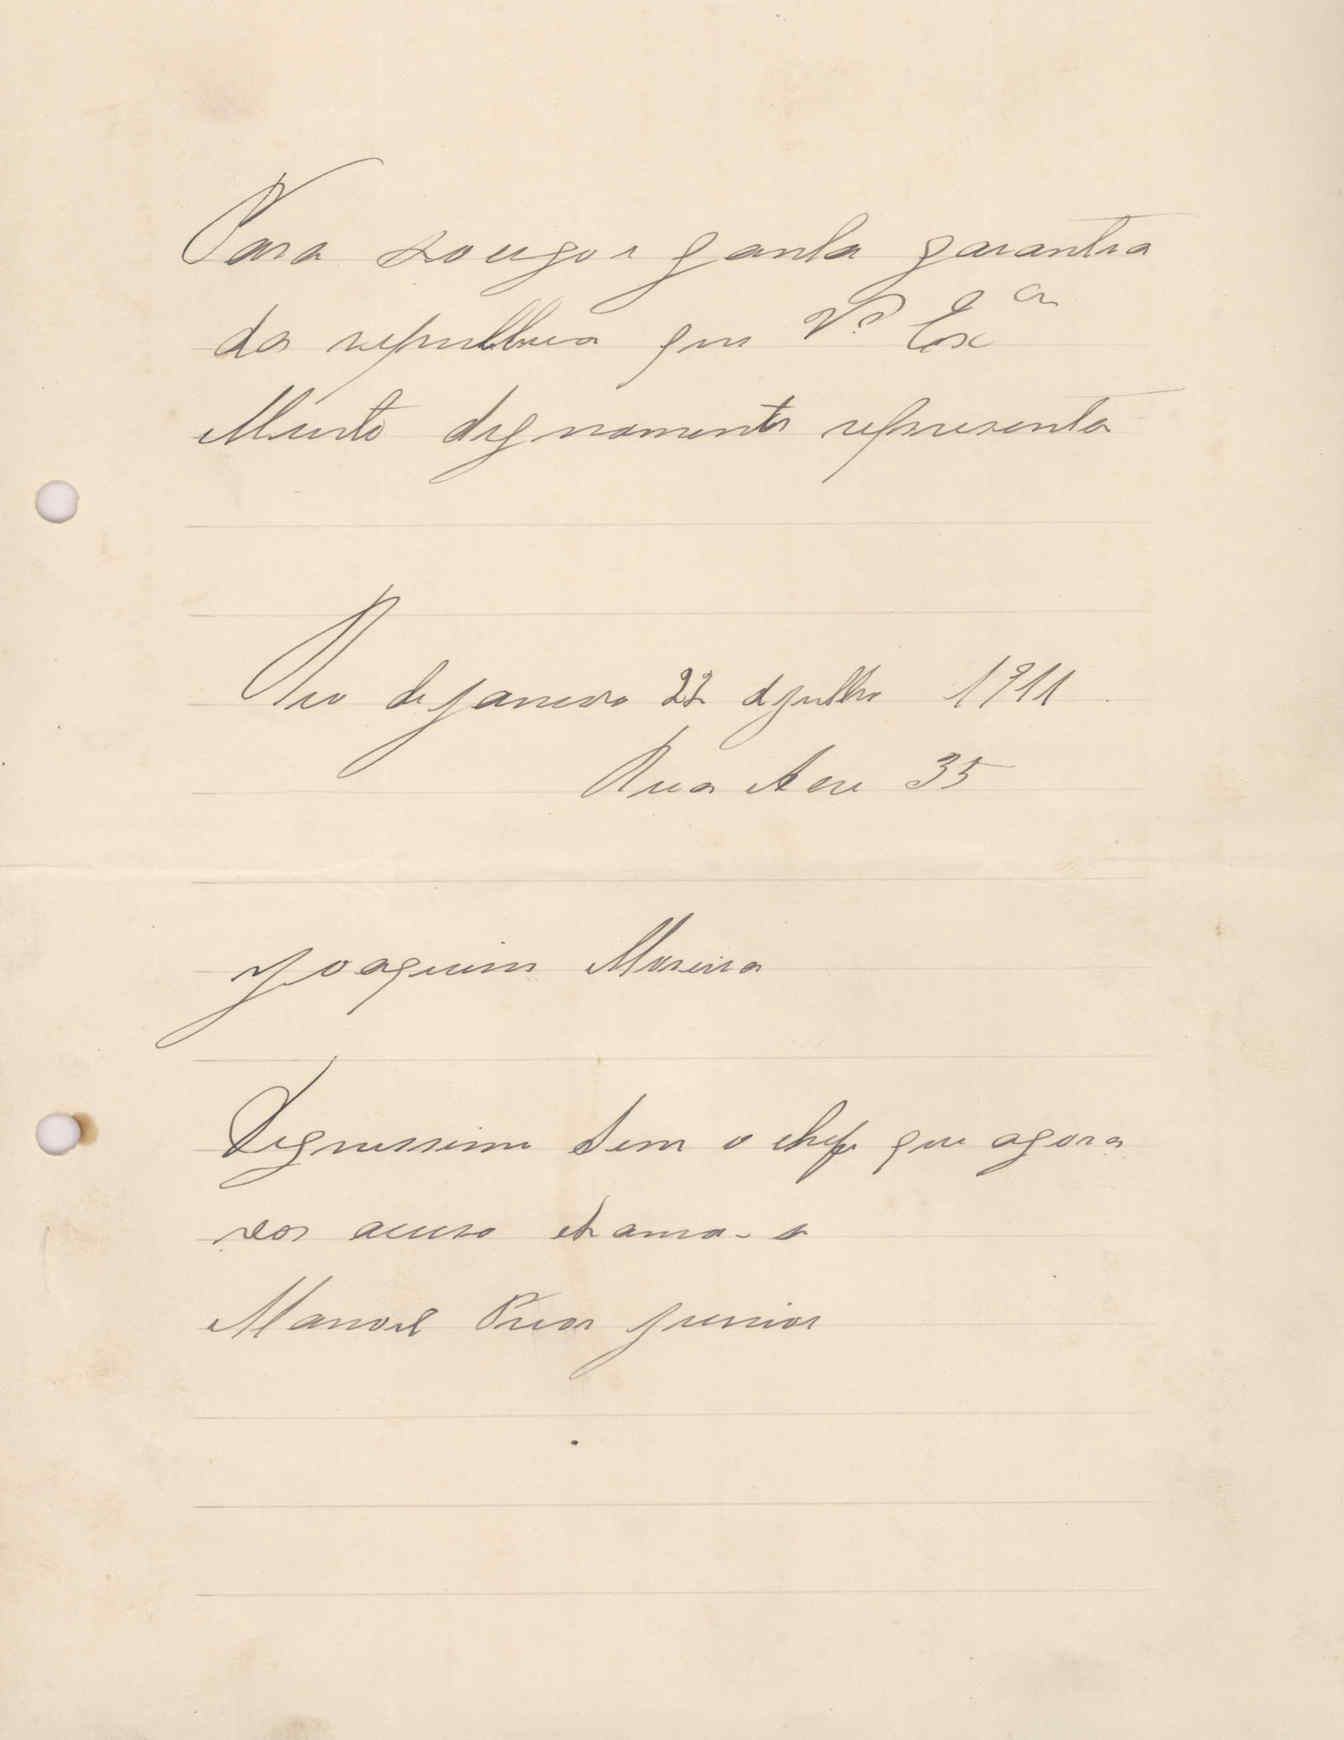 Para garantia
da republica que V.ª Ex.cia
Muito dignamente representa
Rio de janeiro 22 d julho 1911
Rua Acre 35
Joaquim Moreira
Dignissimo Senr o chefe que agora
vos acuso chama-se
Manoel junior